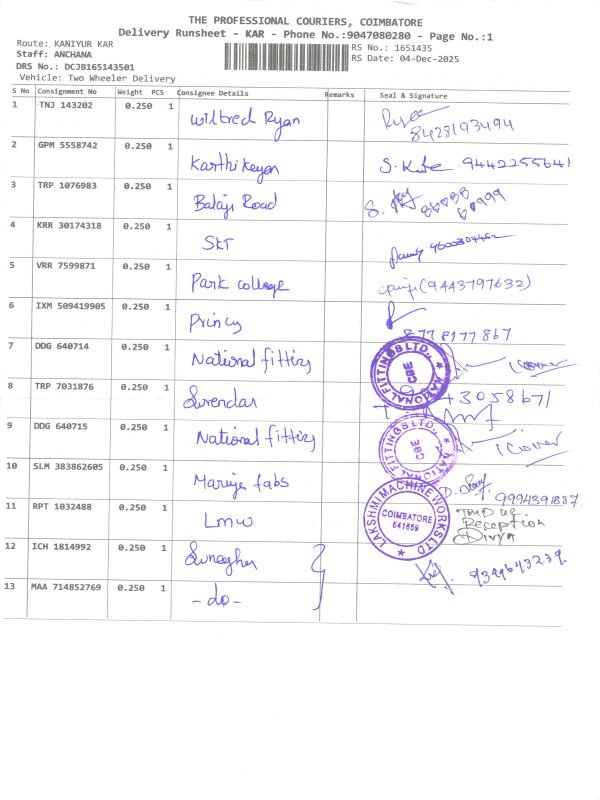 THE PROFESSIONAL COURIERS, COIMBATORE
Delivery Runsheet - KAR - Phone No.:9047080280 - Page No.:1
Route: KANIYUR KAR
Staff: ANCHANA
DRS No.: DCJB165143501
Vehicle: Two Wheeler Delivery
RS No.: 1651435
RS Date: 04-Dec-2025
S No Consignment No Weight PCS Consignee Details Remarks Seal & Signature
1 TNJ 143202 0.250 1 Wilfred Ryan 8428193494
2 GPM 5558742 0.250 1 Karthikeyan 9442255641
3 TRP 1076983 0.250 1 Balaji Road
4 KRR 30174318 0.250 1 SKT
5 VRR 7599871 0.250 1 Park college (9443797632)
6 IXM 509419905 0.250 1 Princy 8778177867
7 DDG 640714 0.250 1 National fitting NATIONAL FITTINGS LTD., CBE 1 Cover
8 TRP 7031876 0.250 1 Surendar
9 DDG 640715 0.250 1 National fitting NATIONAL FITTINGS LTD., CBE 1 Cover
10 SLM 383862605 0.250 1 Mariya fabs 9994391887
11 RPT 1032488 0.250 1 LMW LAKSHMI MACHINE WORKS LTD COIMBATORE 641659 Reception Divya
12 ICH 1814992 0.250 1 9344643239
13 MAA 714852769 0.250 1 - do -